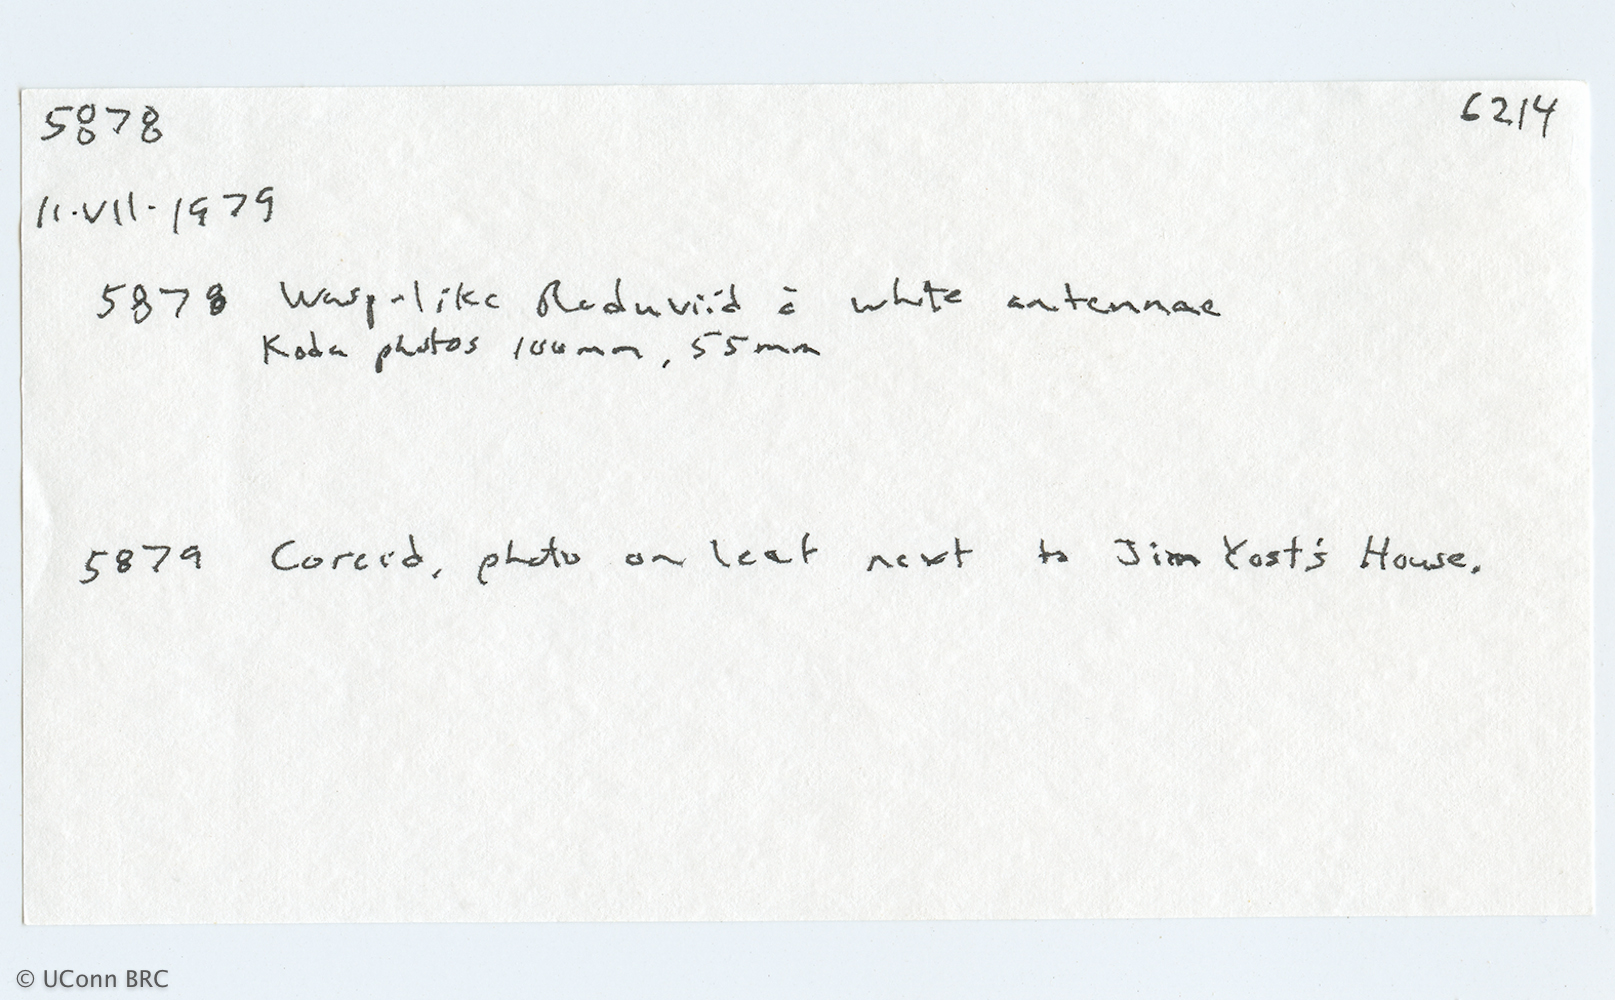 5878 6214
11·VII·1979
5878 Wasp-like Reduviid c̄ white antennae
Koda photos 100mm, 55mm
5879 Coreid, photo on leaf next to Jim Yost's House.
© UConn BRC